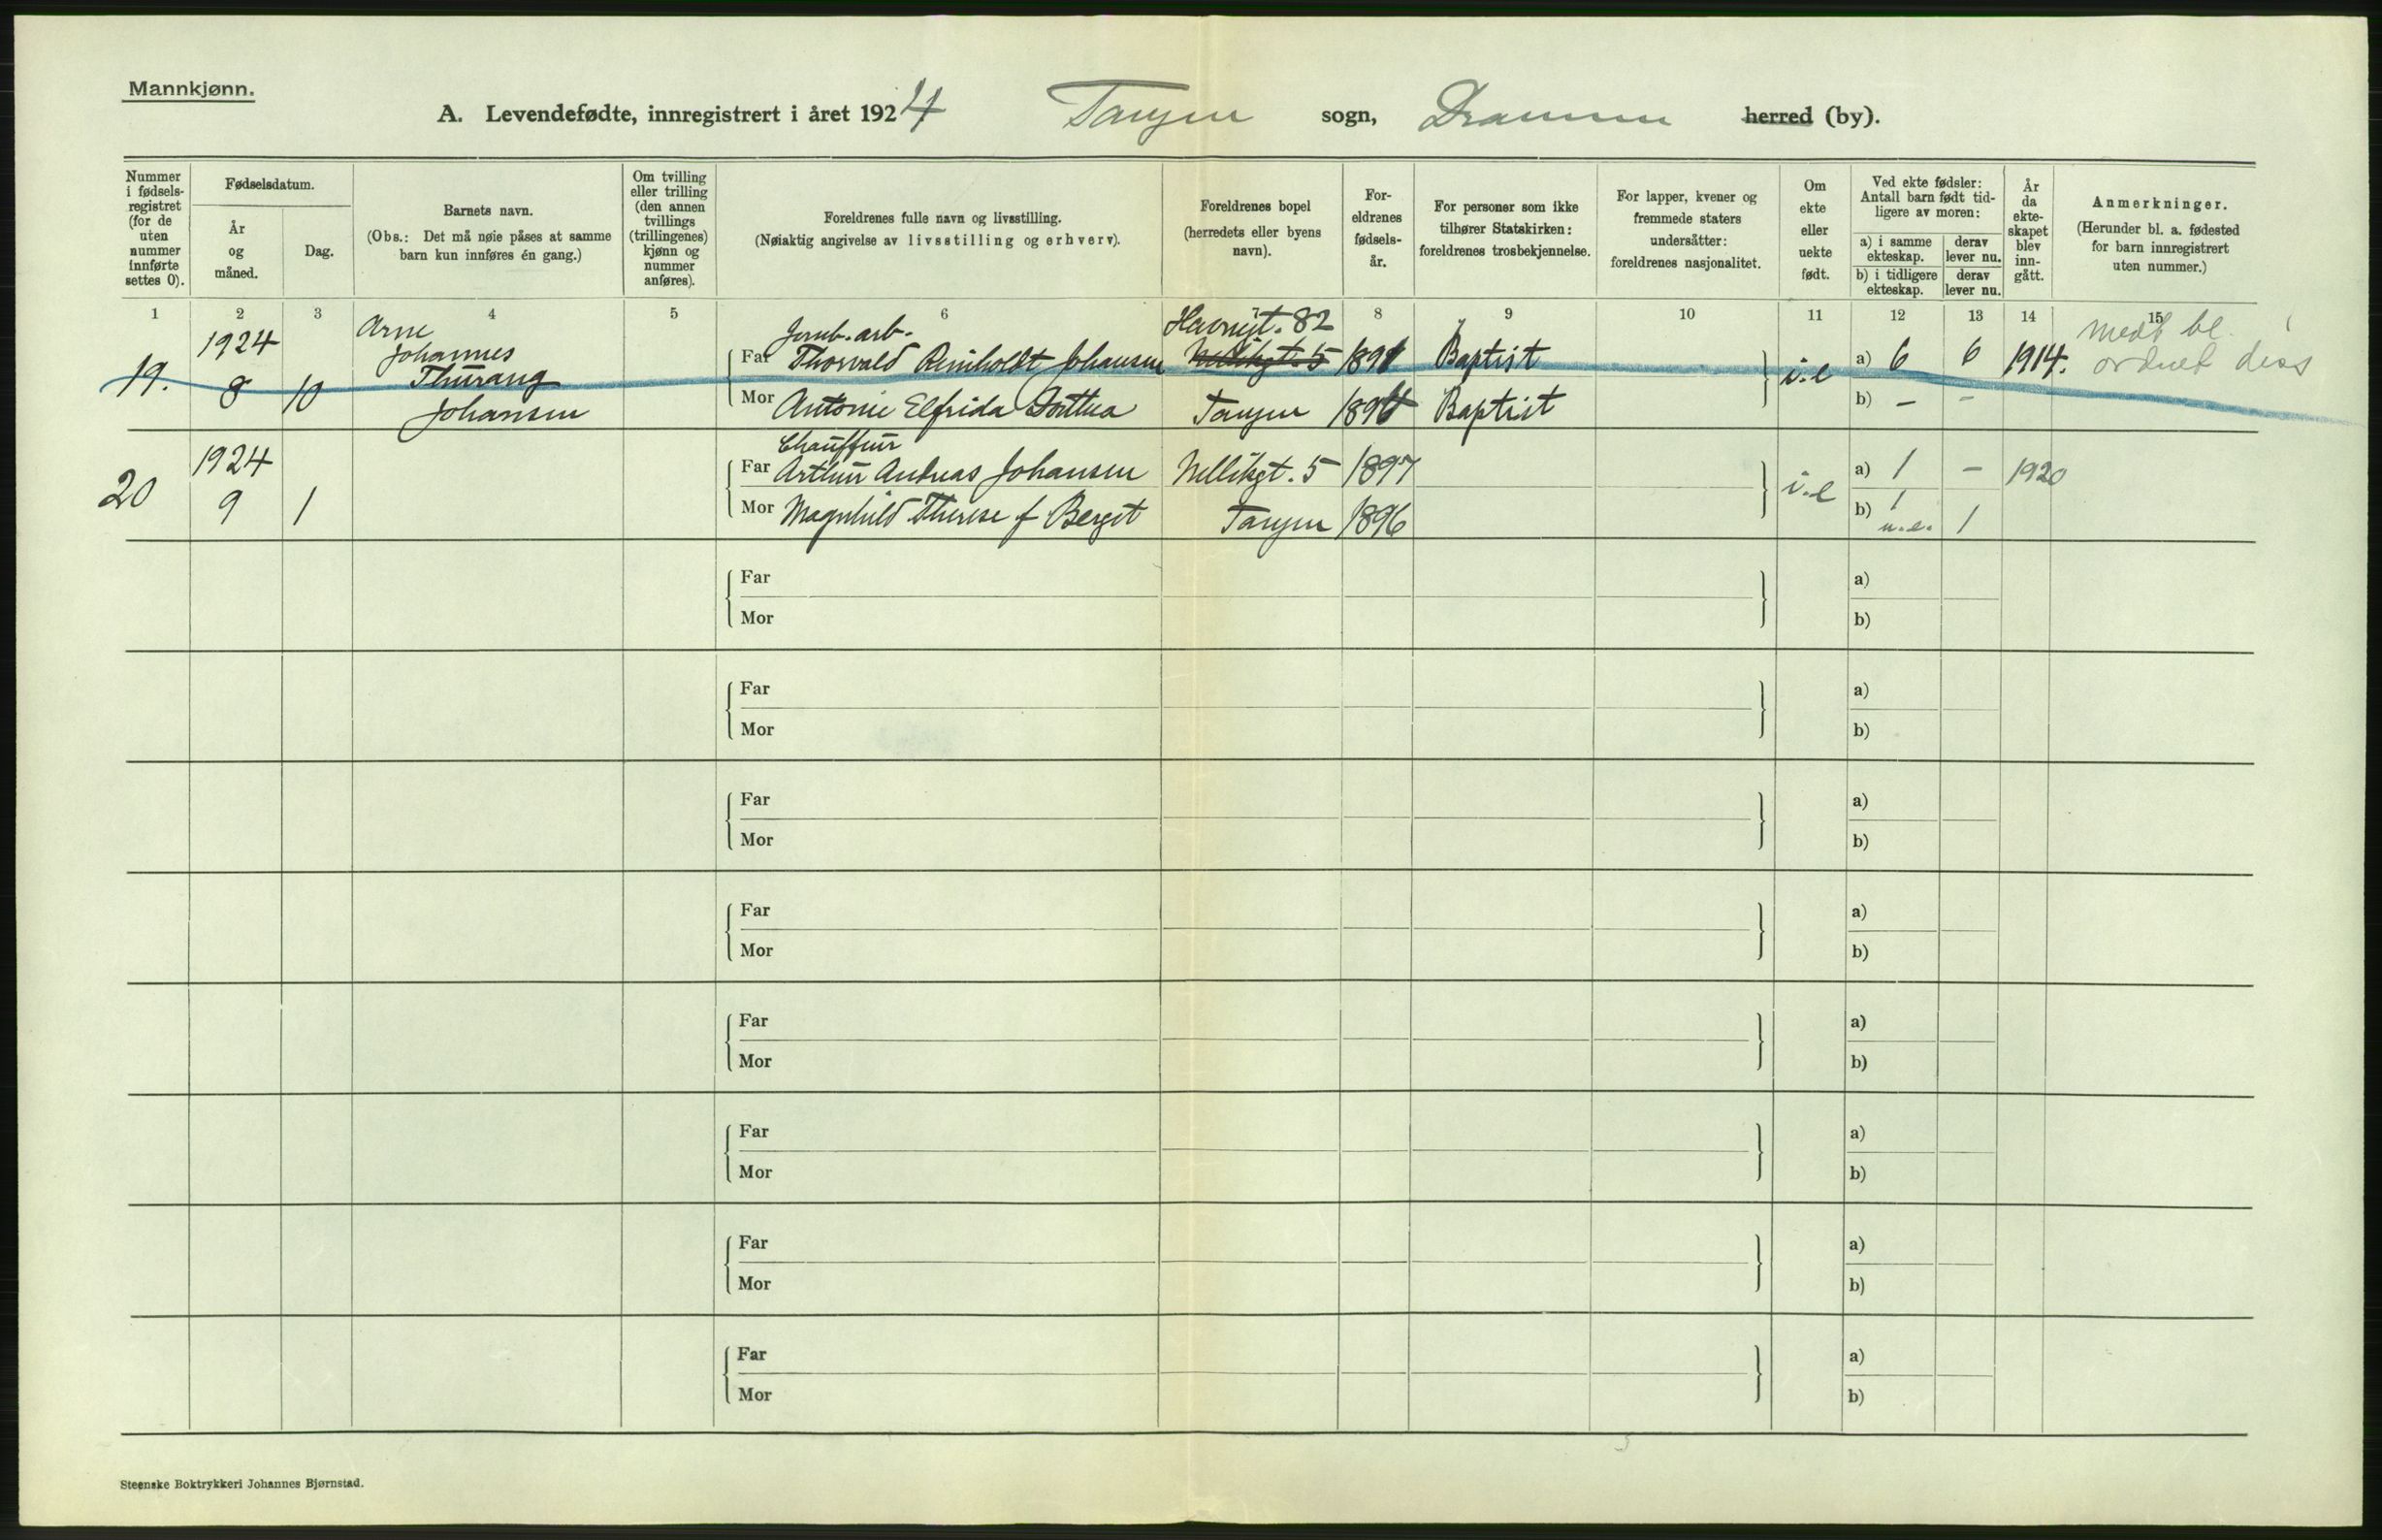 Mannkjønn.
A. Levendefødte, innregistrert i året 1924 Tangen sogn, Drammen herred (by).
Nummer i fødsels-registret (for de uten nummer innførte settes 0).
Fødselsdatum.
År og måned.
Dag.
Barnets navn.
(Obs.: Det må nøie påses at samme barn kun innføres én gang.)
Om tvilling eller trilling (den annen tvillings (trillingenes) kjønn og nummer anføres).
Foreldrenes fulle navn og livsstilling.
(Nøiaktig angivelse av livsstilling og erhverv).
Foreldrenes bopel (herredets eller byens navn).
For-eldrenes fødsels-år.
For personer som ikke tilhører Statskirken: foreldrenes trosbekjennelse.
For lapper, kvener og fremmede staters undersåtter: foreldrenes nasjonalitet.
Om ekte eller uekte født.
Ved ekte fødsler: Antall barn født tid-ligere av moren:
a) i samme ekteskap. derav lever nu.
b) i tidligere ekteskap. derav lever nu.
År da ekte-skapet blev inn-gått.
Anmerkninger.
(Herunder bl. a. fødested for barn innregistrert uten nummer.)
1 2 3 4 5 6 7 8 9 10 11 12 13 14 15
19. 1924 8 10
Arne
Johannes
Thurang
Johansen
Jernb. arb.
Far Thorvald Reinholdt Johansen
Havnegt. 82
Nellikgt. 5 1891 Baptist
i.e a) 6 6 1914.
Mor Antonie Elfrida
Tangen 1894 Baptist
b) - -
medt bl.
ordnet
20 1924 9 1
Chauffeur
Far Arthur Andreas Johansen Nellikgt. 5 1897
i.e a) 1 - 1920
Mor Magnhild Therese f Berget Tangen 1896
b) 1 u.e. 1
Far a)
Mor b)
Far a)
Mor b)
Far a)
Mor b)
Far a)
Mor b)
Far a)
Mor b)
Far a)
Mor b)
Far a)
Mor b)
Far a)
Mor b)
Steenske Boktrykkeri Johannes Bjørnstad.